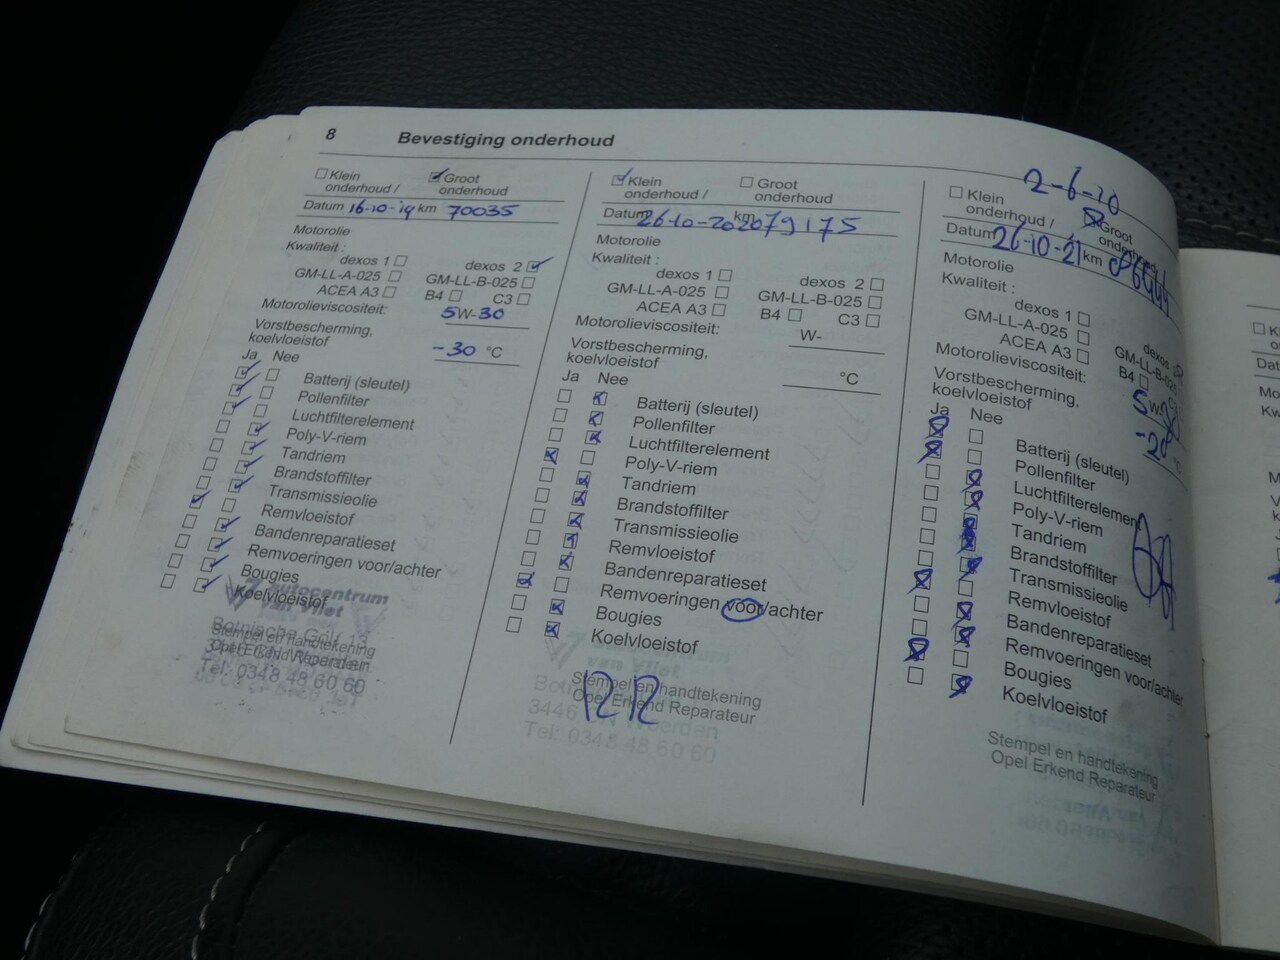 8 Bevestiging onderhoud
Klein onderhoud / Groot onderhoud
Datum 16-10-19 km 70035
Motorolie
Kwaliteit :
dexos 1 dexos 2
GM-LL-A-025 GM-LL-B-025
ACEA A3 B4 C3
Motorolieviscositeit: 5W-30
Vorstbescherming,
koelvloeistof -30 °C
Ja Nee
Batterij (sleutel)
Pollenfilter
Luchtfilterelement
Poly-V-riem
Tandriem
Brandstoffilter
Transmissieolie
Remvloeistof
Bandenreparatieset
Remvoeringen voor/achter
Bougies
Koelvloeistof
Autocentrum
van Vliet
Stempel en handtekening
Opel Erkend Reparateur
Tel: 0348 48 60 60
Klein onderhoud / Groot onderhoud
Datum 26-10-2020 km 79175
Motorolie
Kwaliteit :
dexos 1 dexos 2
GM-LL-A-025 GM-LL-B-025
ACEA A3 B4 C3
Motorolieviscositeit: W-
Vorstbescherming,
koelvloeistof °C
Ja Nee
Batterij (sleutel)
Pollenfilter
Luchtfilterelement
Poly-V-riem
Tandriem
Brandstoffilter
Transmissieolie
Remvloeistof
Bandenreparatieset
Remvoeringen voor/achter
Bougies
Koelvloeistof
van Vliet
Stempel en handtekening
Opel Erkend Reparateur
3446 Woerden
Tel: 0348 48 60 60
2-6-20
Klein onderhoud / Groot
Datum 26-10-21 km
Motorolie
Kwaliteit :
dexos 1 dexos
GM-LL-A-025 GM-LL-B-025
ACEA A3 B4
Motorolieviscositeit: 5W-
Vorstbescherming,
koelvloeistof -20 °C
Ja Nee
Batterij (sleutel)
Pollenfilter
Luchtfilterelement
Poly-V-riem
Tandriem
Brandstoffilter
Transmissieolie
Remvloeistof
Bandenreparatieset
Remvoeringen voor/achter
Bougies
Koelvloeistof
Stempel en handtekening
Opel Erkend Reparateur